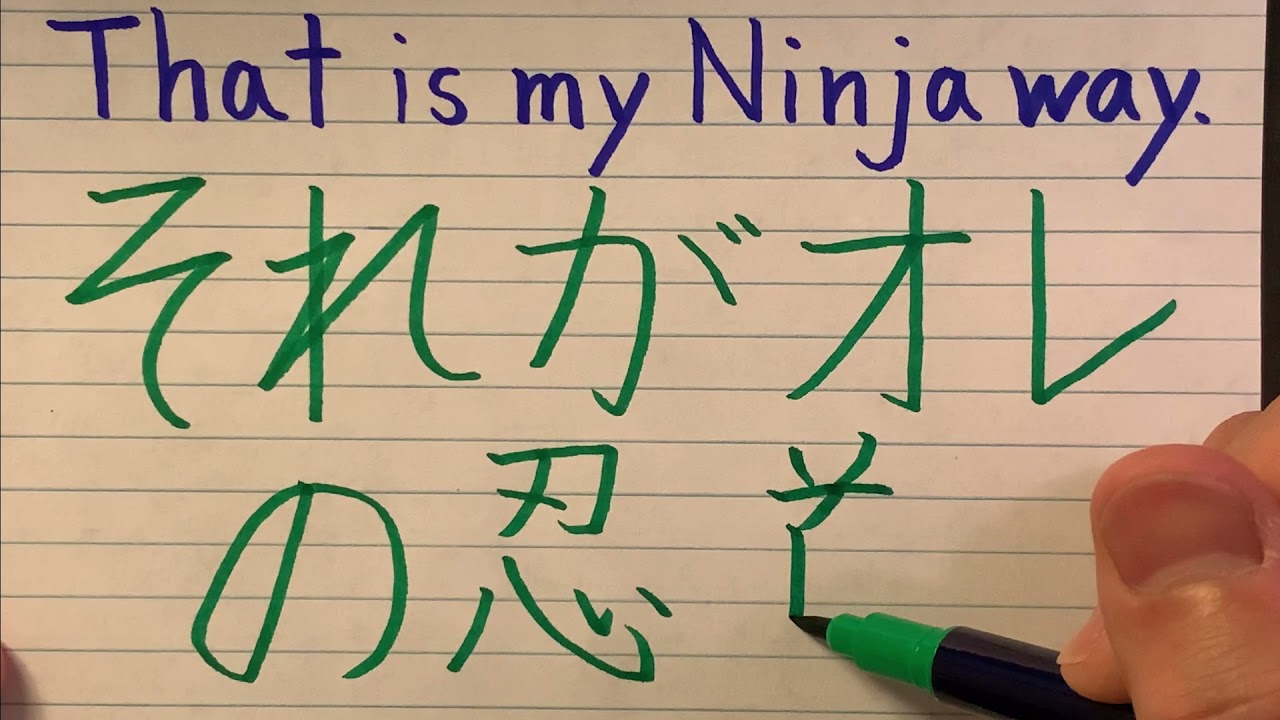 That is my Ninja way.
それがオレ
の忍